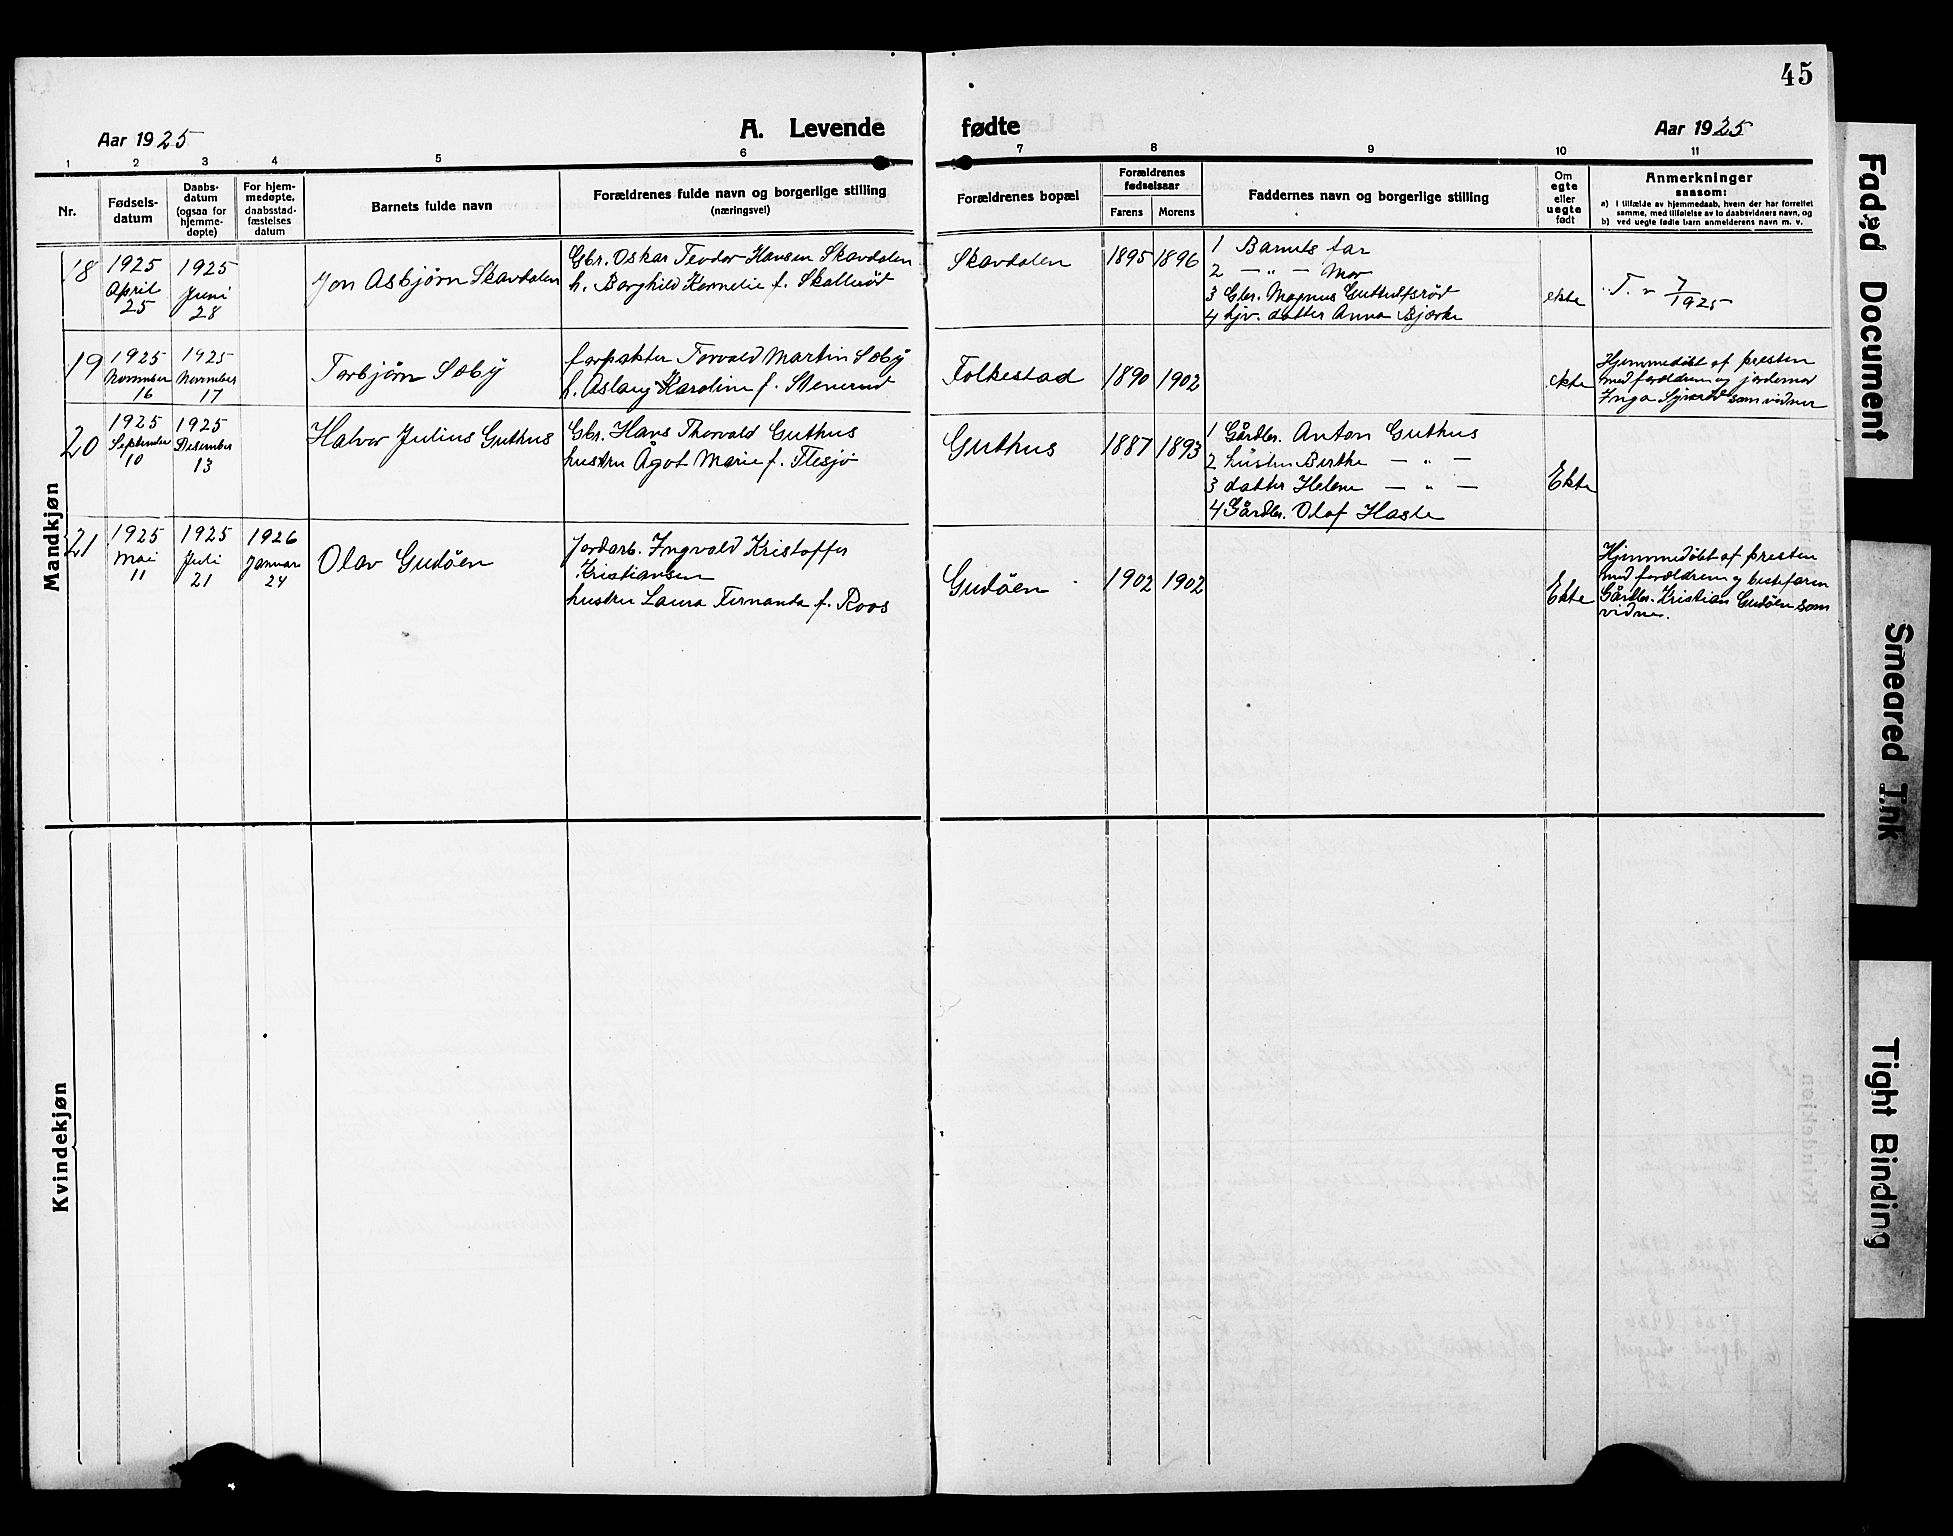 45
Aar 1925
A. Levende
fødte
Aar 1925
1 2 3 4 5 6 7 8 9 10 11
Nr.
Fødsels-
datum
Daabs-
datum
(ogsaa for
hjemme-
døpte)
For hjem-
medøpte,
daabsstad-
fæstelses
datum
Barnets fulde navn
Forældrenes fulde navn og borgerlige stilling
(næringsvei)
Forældrenes bopæl
Forældrenes
fødselsaar
Farens Morens
Faddernes navn og borgerlige stilling
Om
egte
eller
uegte
født
Anmerkninger
saasom:
a) i tilfælde av hjemmedaab, hvem der har forrettet
samme, med tilføielse av to daabsvidners navn, og
b) ved uegte fødte barn anmelderens navn m. v.
Mandkjøn
18
1925
April
25
1925
Juni
28
Jon Asbjørn Skavdalen
Gbr. Oskar Teodor Hansen Skavdalen
h. Borghild Kornelie f. Skallerød
Skavdalen
1895 1896
1 Barnets far
2 — „ — Mor
3 Gbr. Magnus Guttulfsrød
4 hjv. datter Anna Bjørke
ekte
T. 7/1925
19
1925
November
16
1925
November
17
Torbjørn Soby
forpakter Torvald Martin Soby
h. Aslaug Karoline f. Stenerud
Folkestad
1890 1902
ekte
Hjemmedøbt af presten
med foreldrene og jordemor
Inga som vidner
20
1925
September
10
1925
Desember
13
Halvor Julius Guthus
Gbr. Hans Thorvald Guthus
hustru Ågot Marie f. Flesjø
Guthus
1887 1893
1 Gårdbr. Anton Guthus
2 hustru Berthe — „ —
3 datter Helene — „ —
4 Gårdbr. Olaf Hasle
Ekte
21
1925
Mai
11
1925
Juli
21
1926
Januar
24
Olav Gudøen
Jordarb. Ingvald Kristoffer
Kristiansen
hustru Laura Fernanda f. Roos
Gudøen
1902 1902
Ekte
Hjemmedøbt af presten
med foreldrene og bestefaren
Gårdbr. Kristian Gudøen som
vidner.
Kvindekjøn
Faded Document
Smeared Ink
Tight Binding